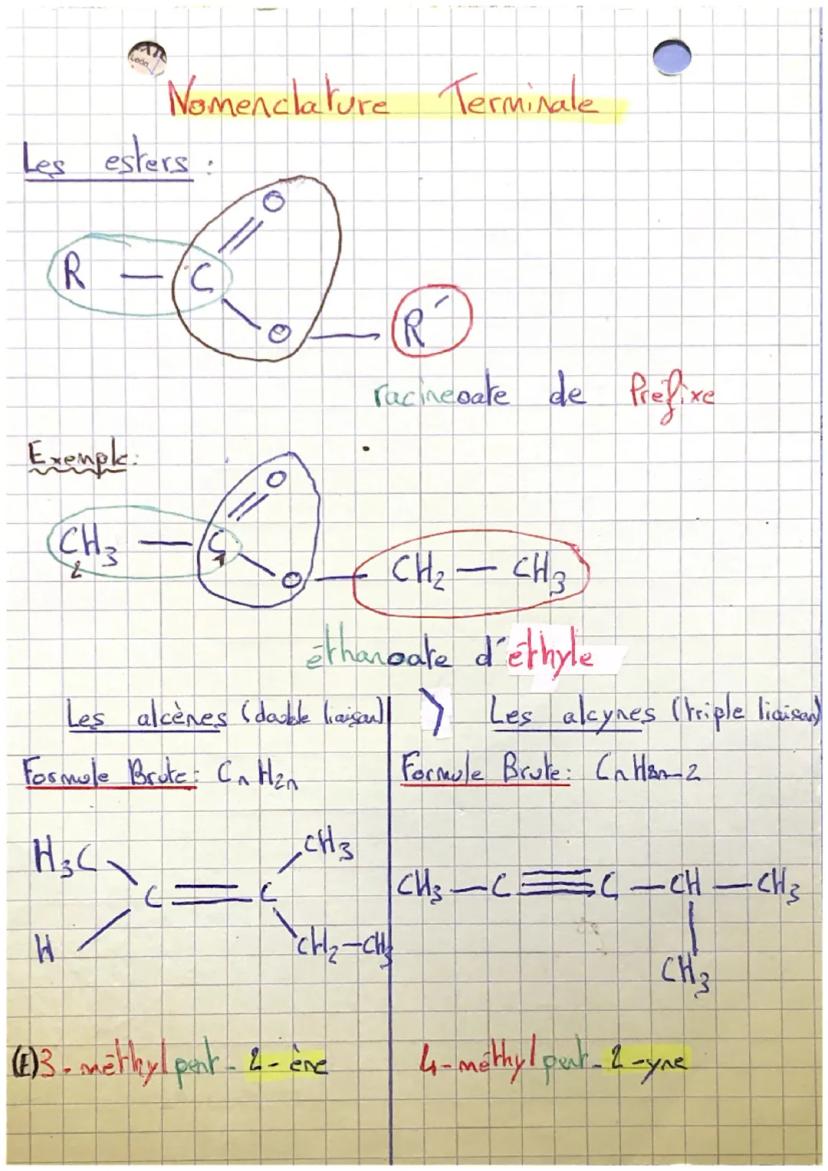 Nomenclature Terminale
Les esters :
O
R — C
O — R´
racineoate de Préfixe
Exemple:
O
CH3 — C
2 1
O — CH2 — CH3
éthanoate d'éthyle
Les alcènes (double liaison)
Formule Brute: CnH2n
H3C CH3
C = C
H CH2—CH3
(E)3-méthylpent-2-ène
Les alcynes (triple liaison)
Formule Brute: CnH2n-2
CH3—C≡C—CH—CH3
CH3
4-méthylpent-2-yne